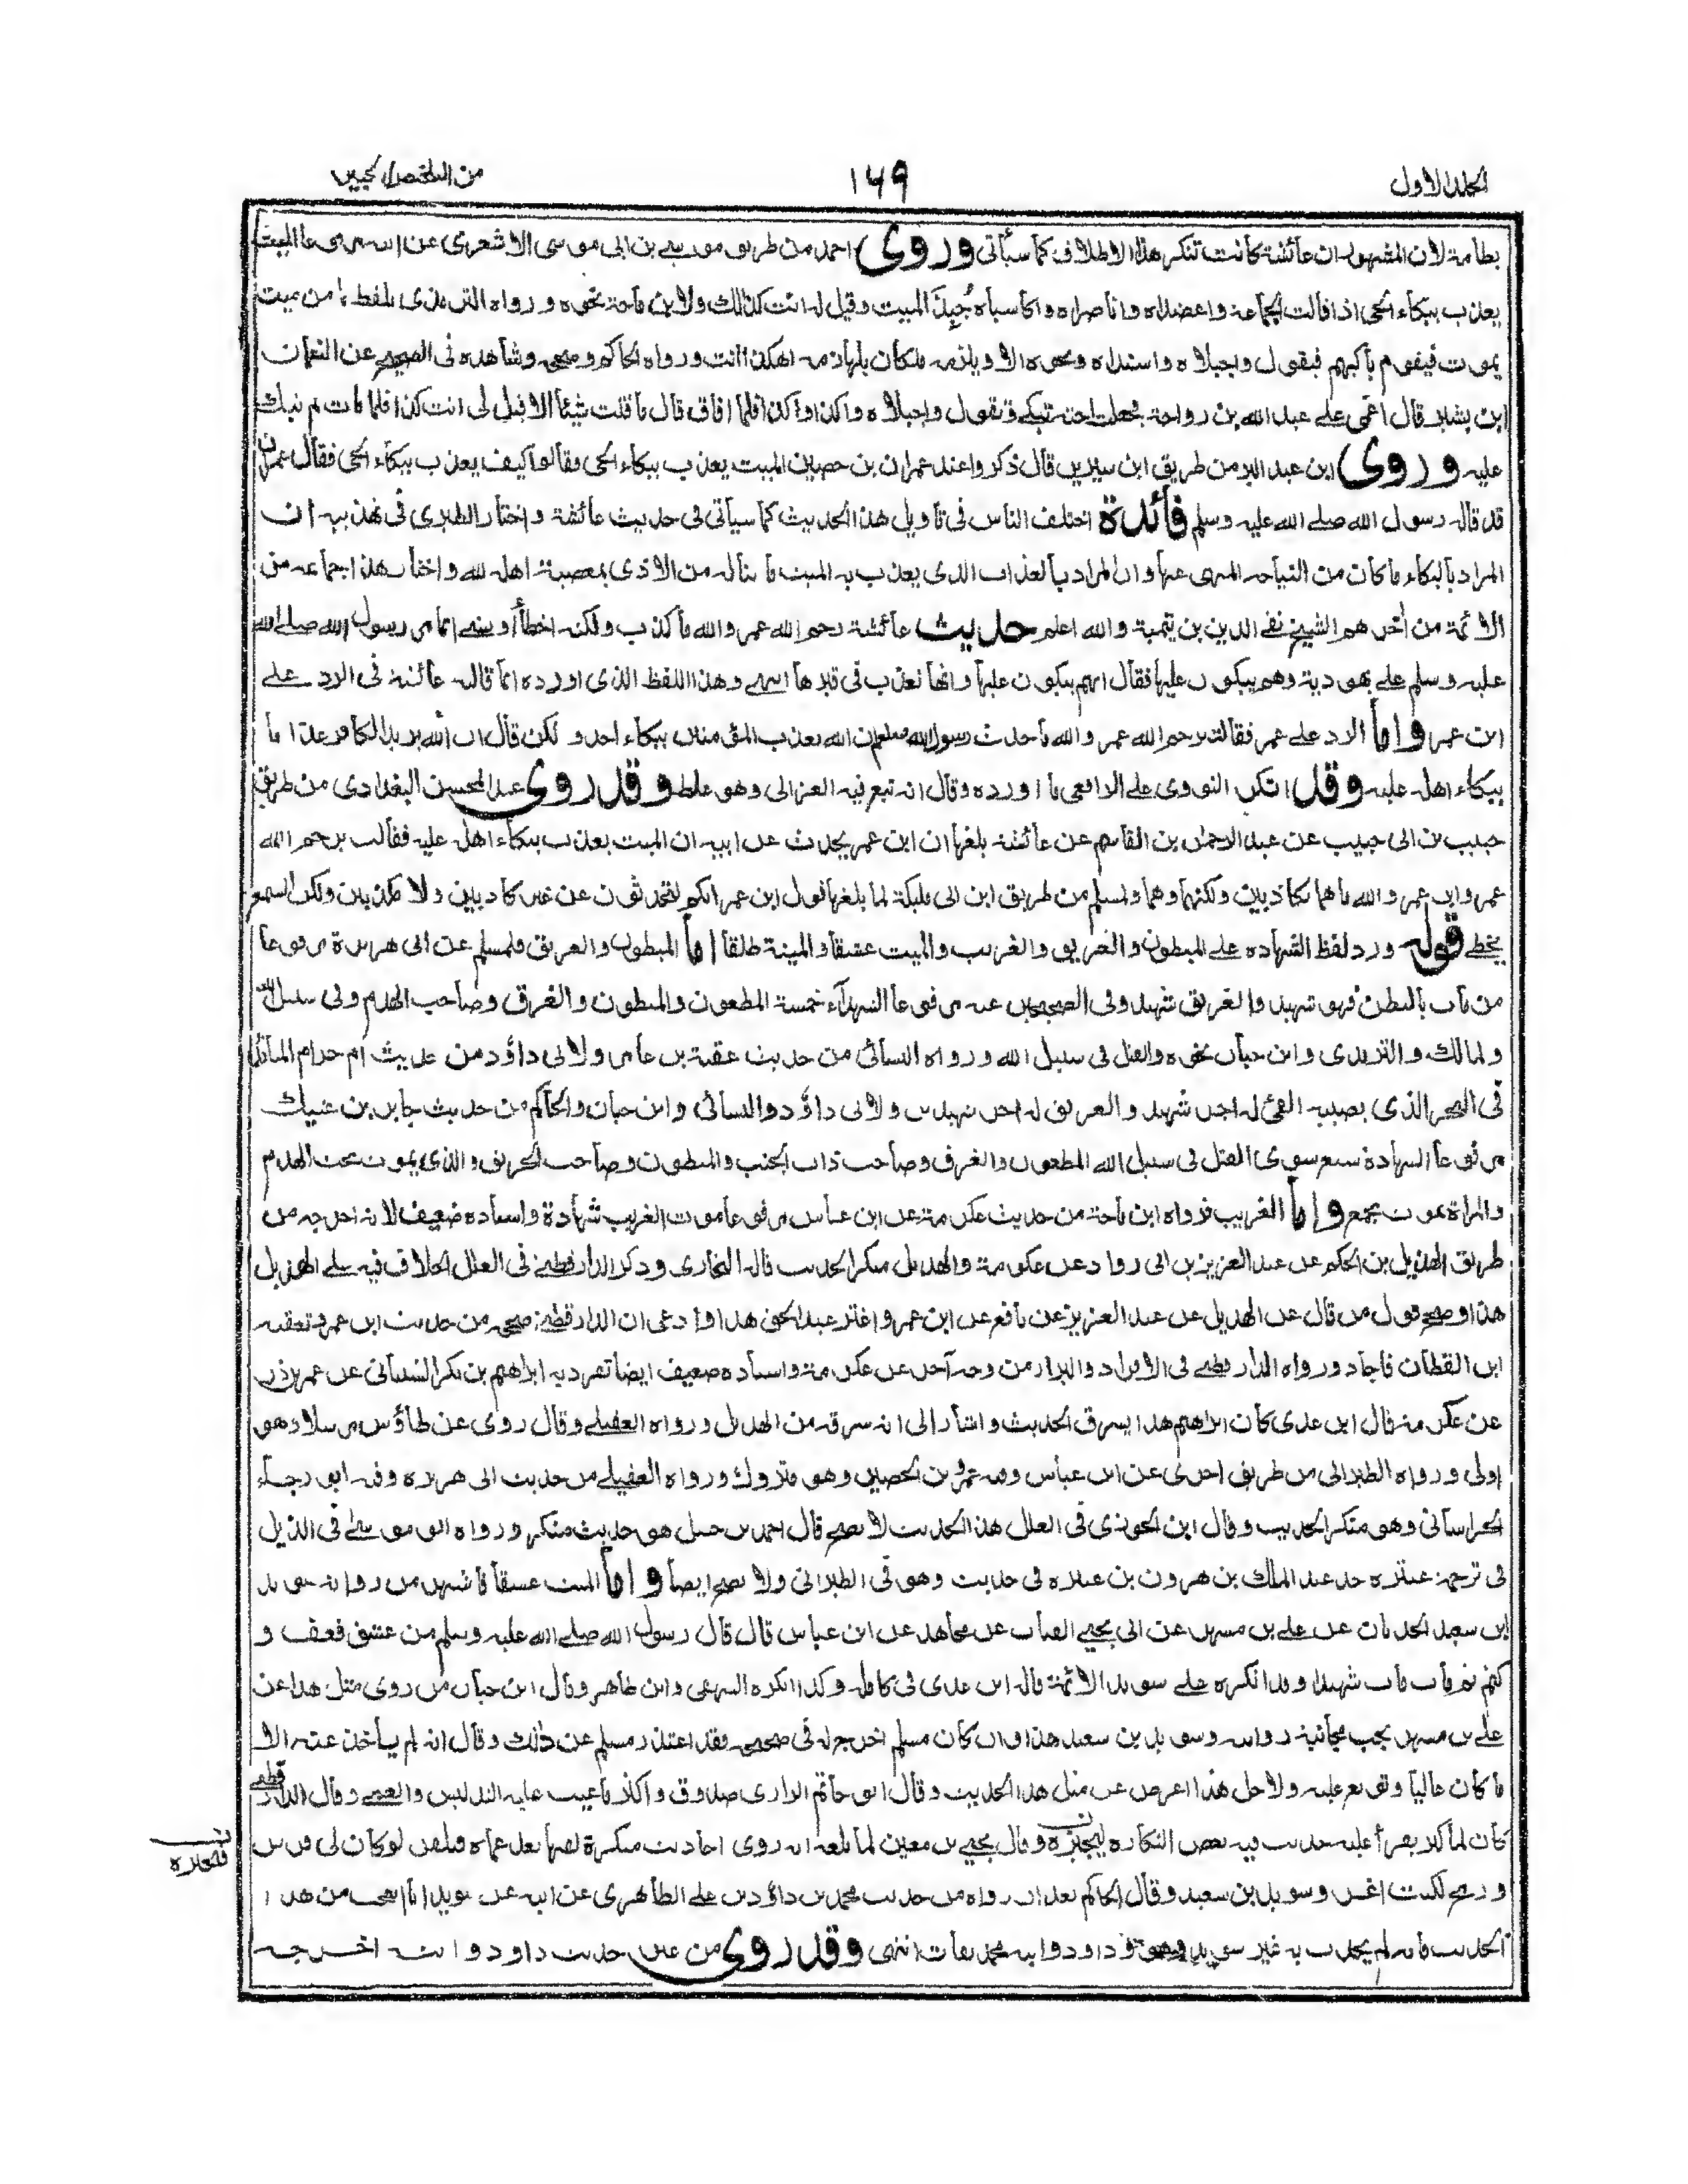 الجلد الاول
۱۶۹
من التلخيص الحبير
لان المشهور ان عائشة كانت تنكر هذا الاطلاق كما سيأتى وروى احمد من طريق موسى بن ابى موسى الاشعرى عن ابيه مرفوعا الميت
يعذب ببكاء الحى اذا قالت الجماعة واعضداه وا ناصراه وا كاسباه جبذ الميت وقيل له انت كذلك ولابن ماجة نحوه ورواه الترمذى بلفظ ما من ميت
يموت فيقوم باكيهم فيقول واجبلاه واسنداه ونحوه الا ويلزمه ملكان يلهازمه اهكذا انت ورواه الحاكم وصححه وشاهده فى الصحيح عن النعمان
ابن بشير قال اغمى على عبد الله بن رواحة فجعلت اخته تبكى وتقول واجبلاه واكذا واكذا فلما افاق قال ما قلت شيئا الا قيل لى انت كذا فلما مات لم تبك
عليه وروى ابن عبد البر من طريق ابن سيرين قال ذكروا عند عمران بن حصين الميت يعذب ببكاء الحى فقالوا كيف يعذب ببكاء الحى فقال عمران
قد قاله رسول الله صلى الله عليه وسلم فائدة اختلف الناس فى تاويل هذا الحديث كما سيأتى فى حديث عائشة واختار الطبرى فى تهذيبه ان
المراد بالبكاء ما كان من النياحه المنهى عنها وان المراد بالعذاب الذى يعذب به الميت ما يناله من الاذى بمعصية اهله لله واختار هذا جماعه من
الائمة من اخرهم الشيخ تقى الدين بن تيمية والله اعلم حديث عائشة رحم الله عمر والله ما كذب ولكنه اخطأ او نسى انما مر رسول الله صلى الله
عليه وسلم على يهودية وهم يبكون عليها فقال انهم يبكون عليها وانها تعذب فى قبرها انتهى وهذا اللفظ الذى اورده انما قالته عائشة فى الرد على
ابن عمر واما الرد على عمر فقالت يرحم الله عمر والله ما حدث رسول الله صلعم ان الله يعذب المؤمنين ببكاء احد ولكن قال ان الله يزيد الكافر عذابا
ببكاء اهله عليه وقد انكر النووى على الرافعى ما اورده وقال انه تبع فيه الغزالى وهو غلط وقد روى عبد المحسن البغدادى من طريق
حبيب بن ابى حبيب عن عبد الرحمن بن القاسم عن عائشة بلغها ان ابن عمر يحدث عن ابيه ان الميت يعذب ببكاء اهله عليه فقالت يرحم الله
عمر وابن عمر والله ما هما بكاذبين ولكنهما وهما ولمسلم من طريق ابن ابى مليكة لما بلغها قول ابن عمر انكم لتحدثون عن غير كاذبين ولا مكذبين ولكن السمع
يخطى قوله ورد لفظ الشهاده على المبطون والغريق والغريب والميت عشقا والميتة طلقا اما المبطون والغريق فلمسلم عن ابى هريرة مرفوعا
من مات بالبطن فهو شهيد والغريق شهيد وفى الصحيحين عنه مرفوعا الشهداء خمسة المطعون والمبطون والغرق وصاحب الهدم وفى سبيل الله
ولمالك والترمذى وابن حبان نحوه والقتل فى سبيل الله ورواه النسائى من حديث عقبة بن عامر ولابى داؤد من حديث ام حرام المائد
فى البحر الذى يصيبه القئ له اجر شهيد والغريق له اجر شهيدين ولابى داؤد والنسائى وابن حبان والحاكم من حديث جابر بن عتيك
مرفوعا الشهادة سبع سوى القتل فى سبيل الله المطعون والغرق وصاحب ذات الجنب والمبطون وصاحب الحريق والذى يموت تحت الهدم
والمراة تموت بجمع واما الغريب فرواه ابن ماجة من حديث عكرمة عن ابن عباس مرفوعا موت الغريب شهادة واسناده ضعيف لانه اخرجه من
طريق الهذيل بن الحكم عن عبد العزيز بن ابى رواد عن عكرمة والهذيل منكر الحديث قاله البخارى وذكر الدارقطنى فى العلل الخلاف فيه على الهذيل
هذا وصحح قول من قال عن الهذيل عن عبد العزيز عن نافع عن ابن عمر واغتر عبد الحق هذا وادعى ان الدارقطنى صححه من حديث ابن عمر وتعقبه
ابن القطان فاجاد ورواه الدارقطنى فى الافراد والبزار من وجه آخر عن عكرمة واسناده ضعيف ايضا تفرد به ابراهيم بن بكر الشيبانى عن عمر بن ذر
عن عكرمة قال ابن عدى كان ابراهيم هذا يسرق الحديث واشار الى انه سرقه من الهذيل ورواه العقيلى وقال روى عن طاؤس مرسلا وهو
اولى ورواه الطبرانى من طريق اخرى عن ابن عباس وفيه عمرو بن الحصين وهو متروك ورواه العقيلى من حديث ابى هريره وفيه ابو رجاء
الخراسانى وهو منكر الحديث وقال ابن الجوزى فى العلل هذا الحديث لا يصح قال احمد بن حنبل هو حديث منكر ورواه ابو موسى فى الذيل
فى ترجمة عنتره جد عبد الملك بن هرون بن عنتره فى حديث وهو فى الطبرانى ولا يصح ايضا واما الميت عشقا فاشهر من رواه سويد
ابن سعيد الحدثان عن على بن مسهر عن ابى يحيى القتات عن مجاهد عن ابن عباس قال قال رسول الله صلى الله عليه وسلم من عشق فعف و
كتم ثم مات مات شهيدا وقد انكره على سويد الائمة قاله ابن عدى فى كامله وكذا انكره البيهقى وابن طاهر وقال ابن حبان من روى مثل هذا عن
على بن مسهر يجب مجانبة روايته وسويد بن سعيد هذا وان كان مسلم اخرج له فى صحيحه فقد اعتذر مسلم عن ذلك وقال انه لم يأخذ عنه الا
ما كان عاليا وتوبع عليه ولاجل هذا اعرض عن مثل هذا الحديث وقال ابو حاتم الرازى صدوق واكثر ما عيب عليه التدليس والعمى وقال الدارقطنى
كان لما كبر يقرأ عليه حديث فيه بعض النكاره فيجيزه وقال يحيى بن معين لما بلغه انه روى احاديث منكرة لقنها بعد عماه فتلقن لو كان لى فرس
ورمح لكنت اغزو سويد بن سعيد وقال الحاكم بعد ان رواه من حديث محمد بن داؤد بن على الظاهرى عن ابيه عن سويد انا اتعجب من هذا
الحديث فانه لم يحدث به غير سويد وهو وداود وابنه محمد ثقات انتهى وقد روى من غير حديث داود وابنه اخرجه